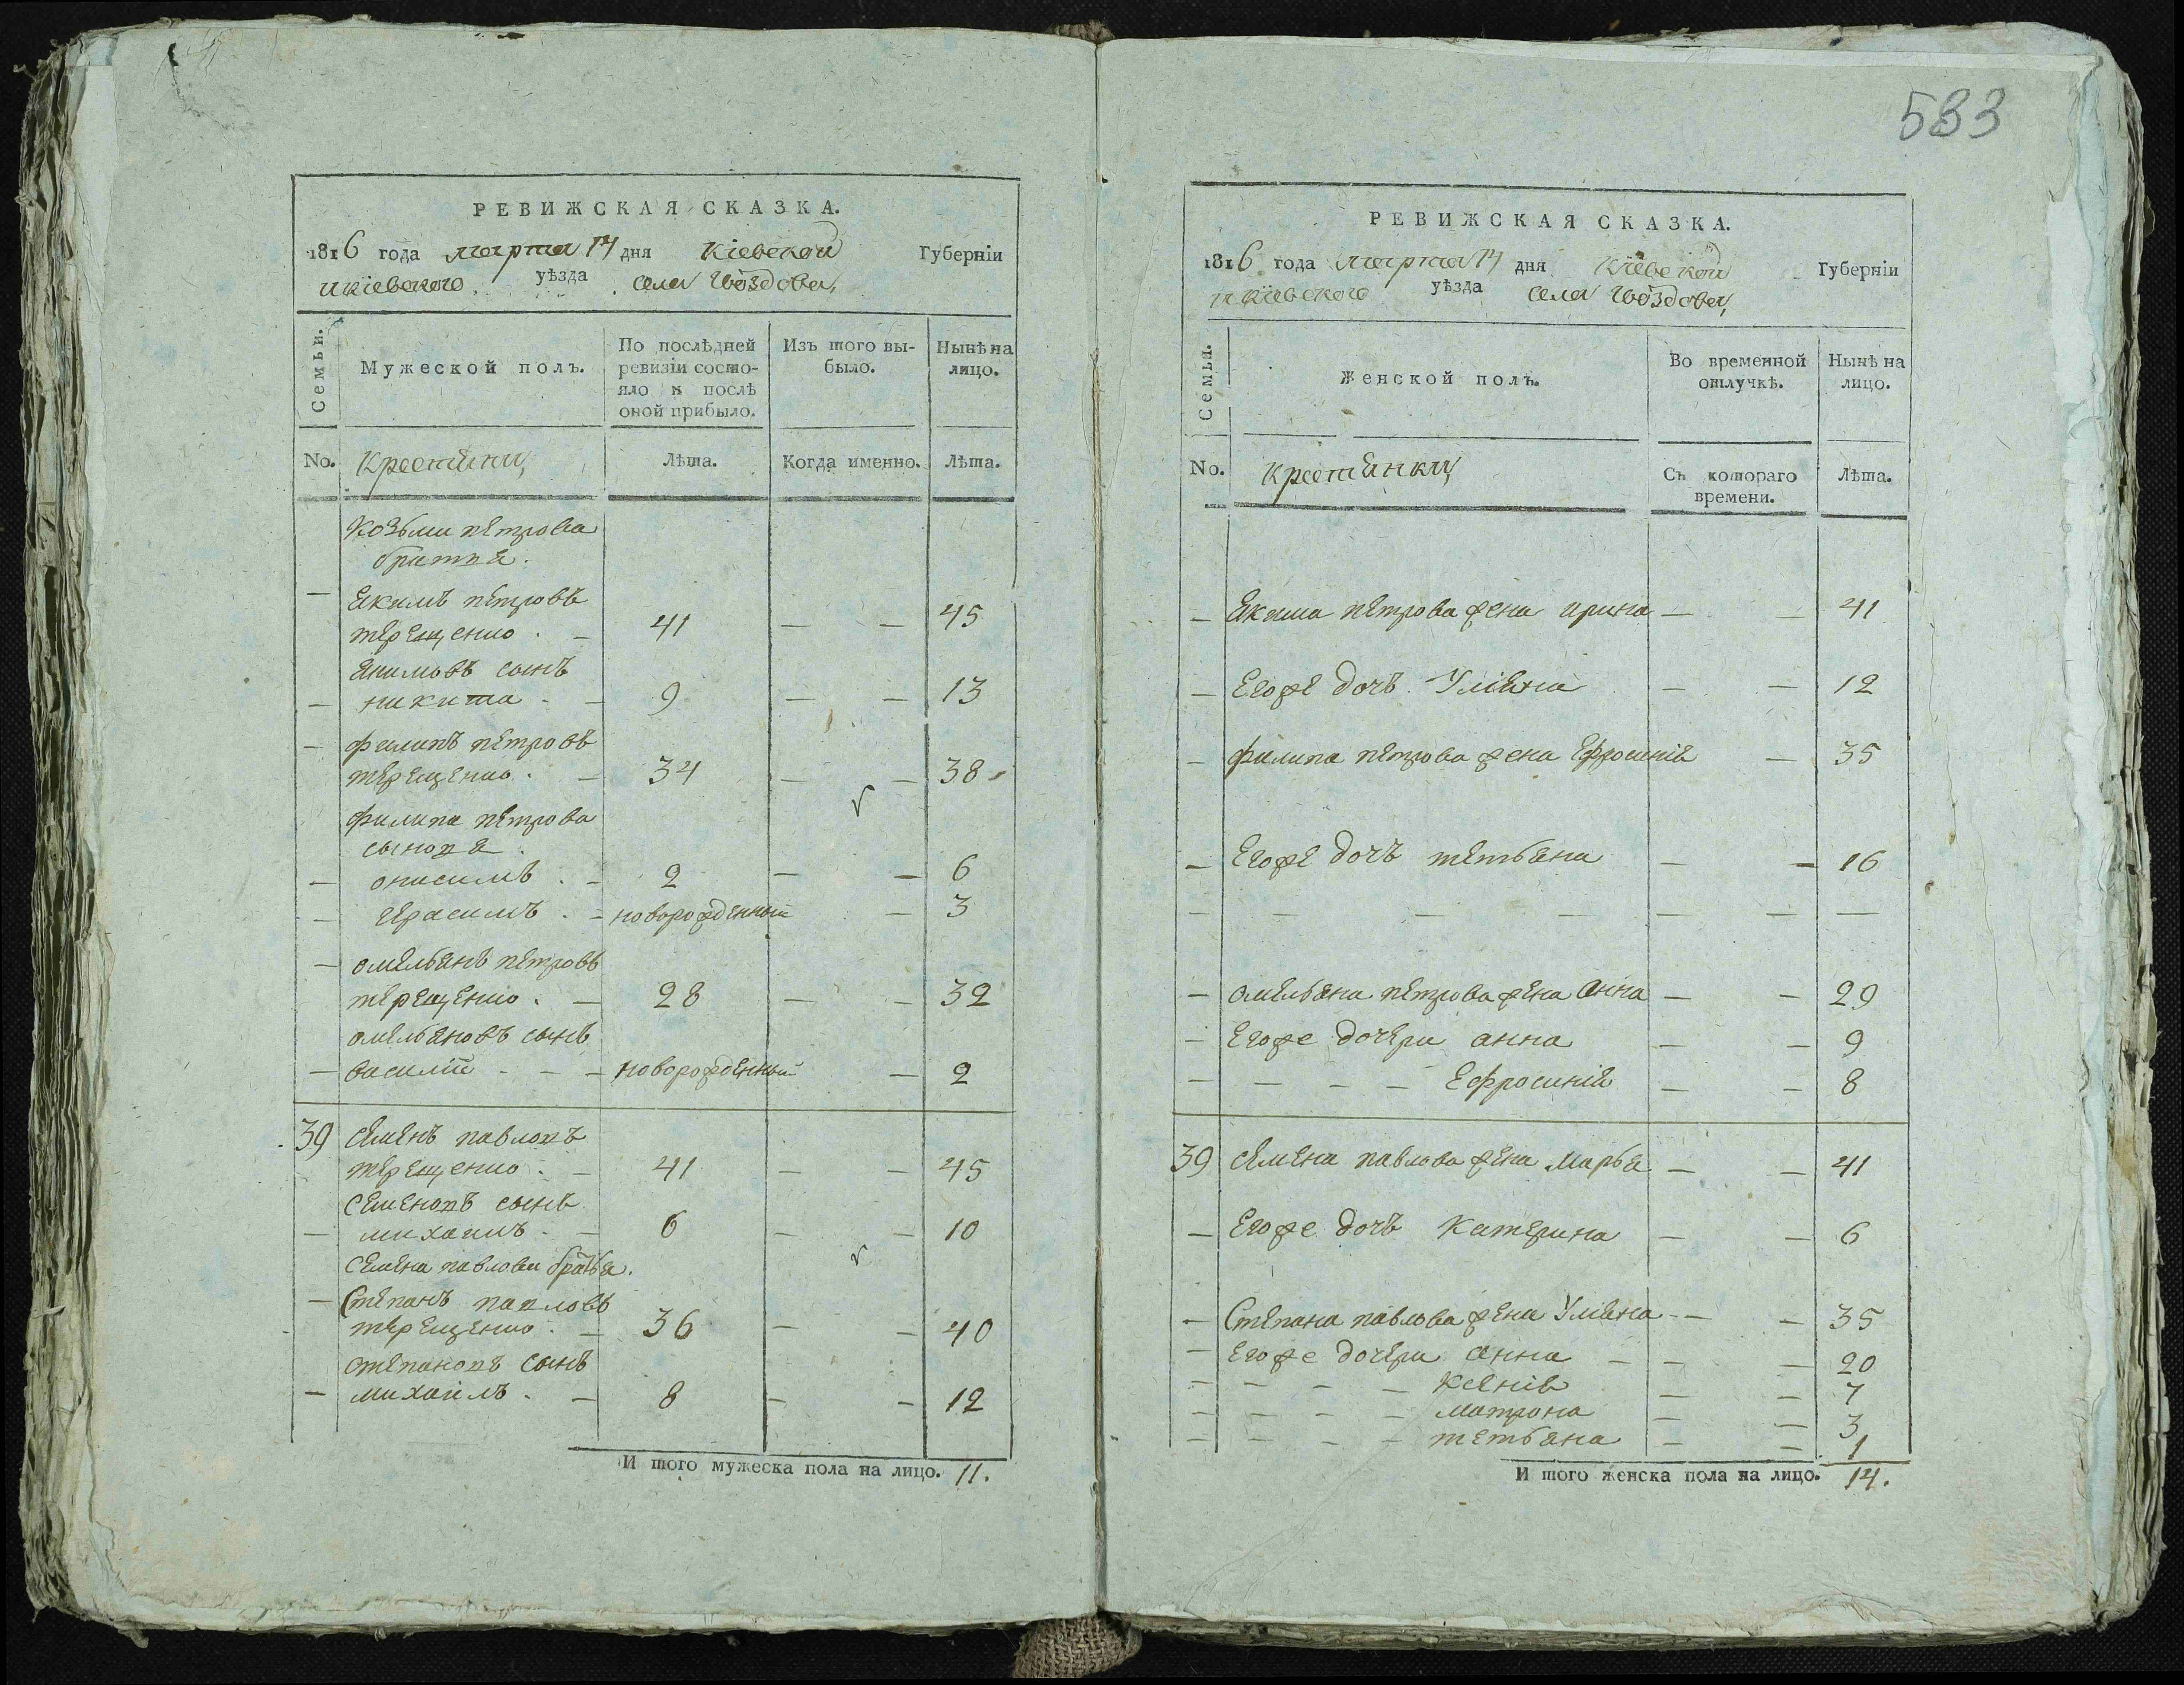 583
РЕВИЖСКАЯ СКАЗКА.
1816 года марта 14 дня Кіевской Губерніи
и кіевского уѣзда села Гвоздова,
Семьи.
Мужеской полъ.
По послѣдней ревизіи состо-
яло и послѣ
оной прибыло.
Изъ того вы-
было.
Нынѣ на
лицо.
No. Крестяни, Лѣта. Когда именно. Лѣта.
Козьми петрова
братья.
— якимъ петровъ
терещенко . — 41 — — 45
якимовъ сынъ
— никита - — 9 — — 13
— филипъ петровъ
терещенко . — 34 — — 38
филипа петрова
сыновя .
— онисимъ . — 2 — — 6
— герасимъ . — новорожденный — 3
— омельянъ петровъ
терещенко . — 28 — — 32
омельяновъ сынъ
— василій - — — новорожденный — 2
39 семенъ павловъ
терещенко . — 41 — — 45
семеновъ сынъ
— михаилъ . — 6 — — 10
семена павлова братья.
— Степанъ павловъ
терещенко . — 36 — — 40
степановъ сынъ
— михаилъ . — 8 — — 12
И того мужеска пола на лицо. 11.
РЕВИЖСКАЯ СКАЗКА.
1816 года марта 14 дня Кіевской Губерніи
и кіевского уѣзда села Гвоздова,
Семья.
Женской полъ.
Во временной
отлучкѣ.
Нынѣ на
лицо.
No. крестянки, Съ котораго
времени. Лѣта.
— якима петрова жена ирина — — 41
— Егоже дочъ Уліяна — — 12
— филипа петрова жена Ефросинія — 35
— Егоже дочъ тетьяна — — 16
— — — — — — —
— омельяна петрова жена Анна — — 29
— Егоже дочери анна — — 9
— — — — Ефросинія — — 8
39 семена павлова жена Марья — — 41
— Егоже дочъ Катерина — — 6
— Степана павлова жена Уліяна — — 35
— Егоже дочери Анна — — — 20
— — — — Ксенія — — 7
— — — — матрона — — 3
— — — — тетьяна — — 1
И того женска пола на лицо. 14.